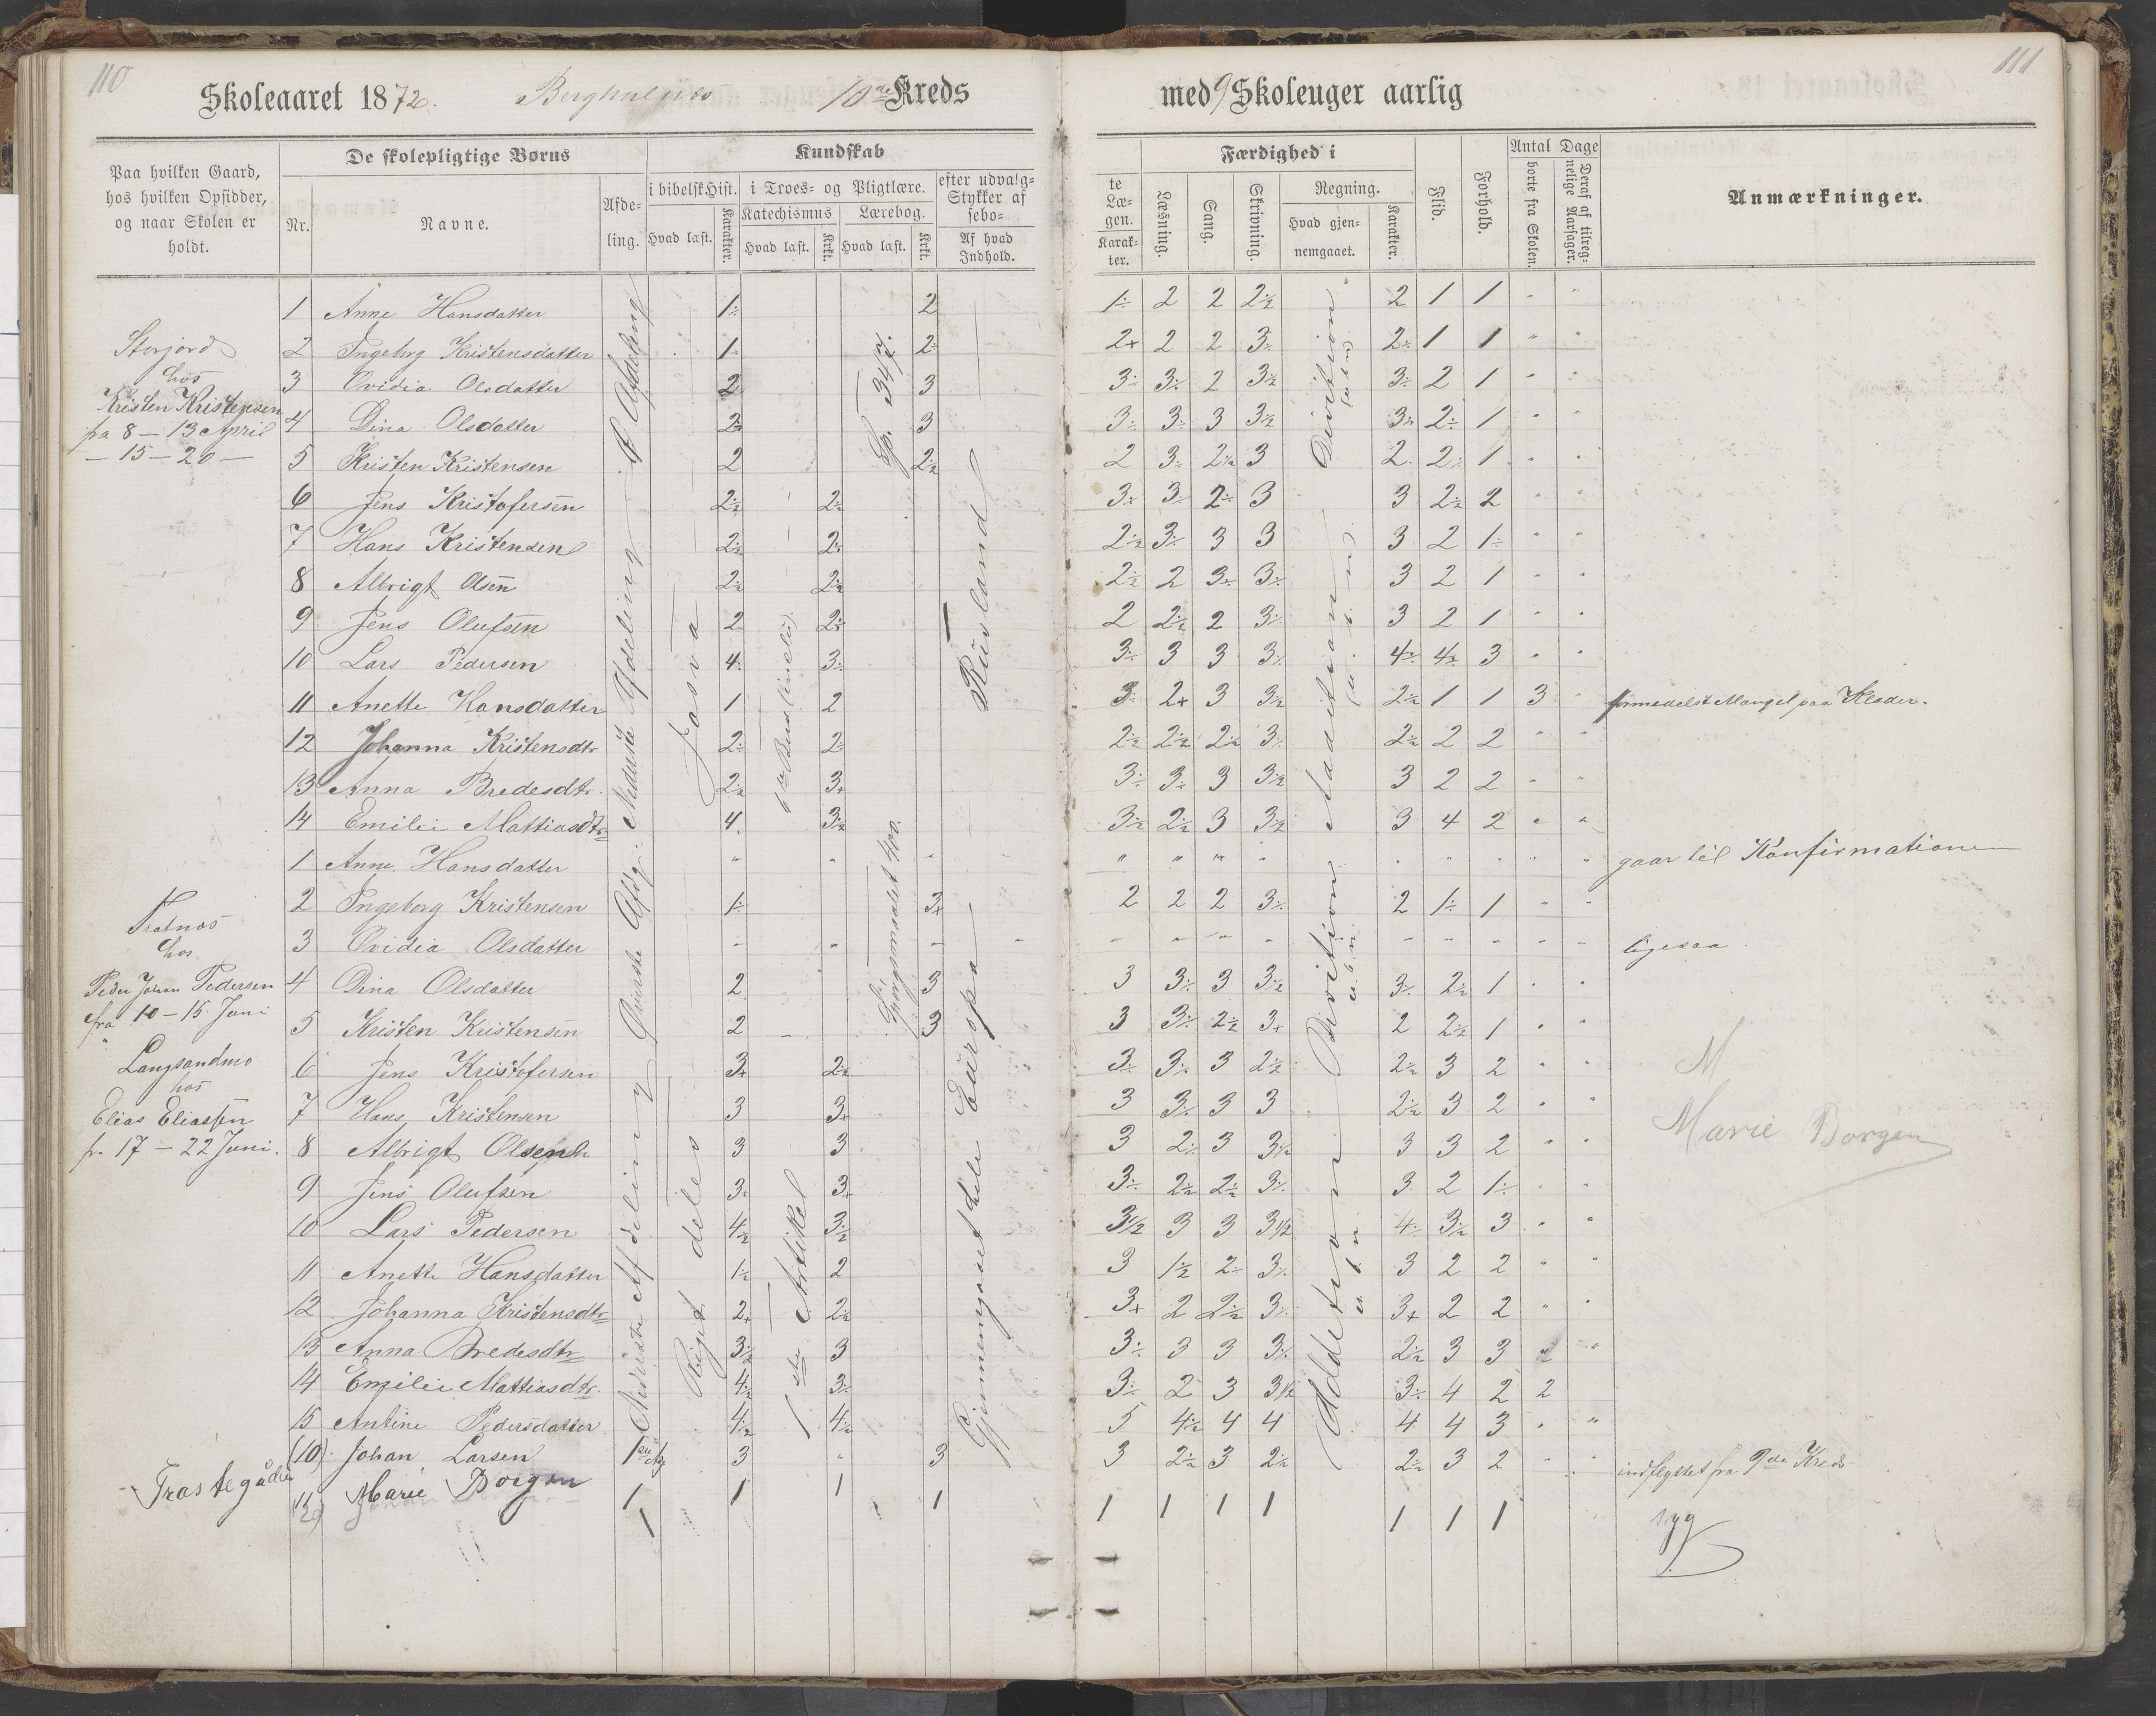 110
111
Skoleaaret 1872. 10de Kreds
med 9 Skoleuger aarlig
Paa hvilken Gaard, hos hvilken Opsidder, og naar Skolen er holdt.
De skolepligtige Børns
Nr. Navne. Afdeling.
Kundskab
i bibelsk Hist. i Troes- og Pligtlære. efter udvalg-
Stykker af
Hvad læst. Karakter. Katechismus Lærebog. sebo-
Hvad læst. Krkt. Hvad læst. Krkt. Af hvad Indhold.
te Læ-
gen.
Karak-
ter.
Færdighed i
Læsning. Sang. Skrivning. Regning.
Hvad gjen-
nemgaaet. Karakter.
Flid. Forhold.
Antal Dage
borte fra Skolen. Deraf af tilreg-
nelige Aarsager.
Anmærkninger.
Storjord
hos
Kristen Kristensen
fra 8 - 13 April
- 15 - 20 -
1 Anne Hansdatter 1÷ 2 1÷ 2 2 2÷ 2 1 1
2 Ingebrg Kristensdatter 1 2÷ 2+ 2 2 3÷ 2÷ 1 1
3 Ovidia Olsdatter 2 3 3÷ 3÷ 2 3½ 3÷ 2 1
4 Dina Olsdatter 2½ 3 3÷ 3÷ 3 3½ 3÷ 2÷ 1
5 Kristen Kristensen 2 2½ 2 3÷ 2½ 3 2 2÷ 1
6 Jens Kristofersen 2½ 2½ 3÷ 3÷ 2÷ 3 3 2½ 2
7 Hans Kristensen 2½ 2÷ 2½ 3÷ 3 3 3 2 1÷
8 Albrigt Olsen 2½ 2½ 2½ 2 3÷ 3÷ 3 2 1
9 Jens Olufsen 2 2÷ 2 2½ 2 3÷ 3 2 1
10 Lars Pedersen 4÷ 3÷ 3÷ 3 3 3÷ 4½ 4½ 3
11 Anette Hansdatter 1 2 3 2+ 3 3½ 2½ 1 1 3 formedelst Mangel paa Klæder.
12 Johanna Kristensdtr 2÷ 2÷ 2½ 2½ 2½ 3÷ 2½ 2 2
13 Anna Bredesdtr. 2½ 3+ 3÷ 3÷ 3 3½ 3 2 2
14 Emilie Mattiasdtr 4 3½ 3½ 2½ 3 3½ 3 4 2
A Afdeling
Nederste Afdeling
Josva
Rusland
Division
Addition
1 Anne Hansdatter gaar til Konfirmationen
2 Ingeborg Kristensen 1÷ 3+ 2 2 2 3÷ 2 1÷ 1
3 Ovidia Olsdatter ligesaa
hos
Peder Johan Pedersen
fra 10 - 15 Juni
Langsandmo
hos
Elias Eliassen
fr. 17 - 22 Juni.
4 Dina Olsdatter 2 3 3 3÷ 3 3½ 3÷ 2½ 1
5 Kristen Kristensen 2 3 3 3÷ 2½ 3+ 2 2½ 1
6 Jens Kristofersen 3+ 2½ 3÷ 3÷ 3 2½ 2½ 3 2
7 Hans Kristensen 3 3+ 3 3÷ 3 3 2½ 3 2
8 Albrigt Olsen 3 3 3 2÷ 3 3½ 3 3 2
9 Jens Olufsen 3÷ 3+ 3÷ 2½ 2½ 3÷ 3 2 1÷
10 Lars Pedersen 4½ 3½ 3½ 3 3 3½ 4÷ 3½ 3
11 Anette Hansdatter 1½ 2 3 1½ 2÷ 3÷ 3 2 2
12 Johanna Kristensdtr 2+ 2½ 3+ 2 2½ 3÷ 3+ 2 2
13 Anna Bredesdtr 3½ 3 3÷ 3 3 3÷ 2½ 3 3 2
14 Emilie Mattiasdtr 4½ 3÷ 3÷ 2 3 3½ 3÷ 4 2 2
15 Antine Pedersdatter 4½ 4½ 5 4½ 4 4 4 4 3
(10) Johan Larsen 3 3 3 2½ 3 2½ 2½ 3 2 indflyttet fra 9de Kreds
Øverste Afdgr.
Nederste Afdeling
Riget deles
1ste Artikel
Spørgsmaalet 400.
Gjennemgaaet hele Europa
Division
Addetion
M
Marie Borgen
Trastegåden
Marie Borgen 1 1 1 1 1 1 1 1 1 1 1
syg